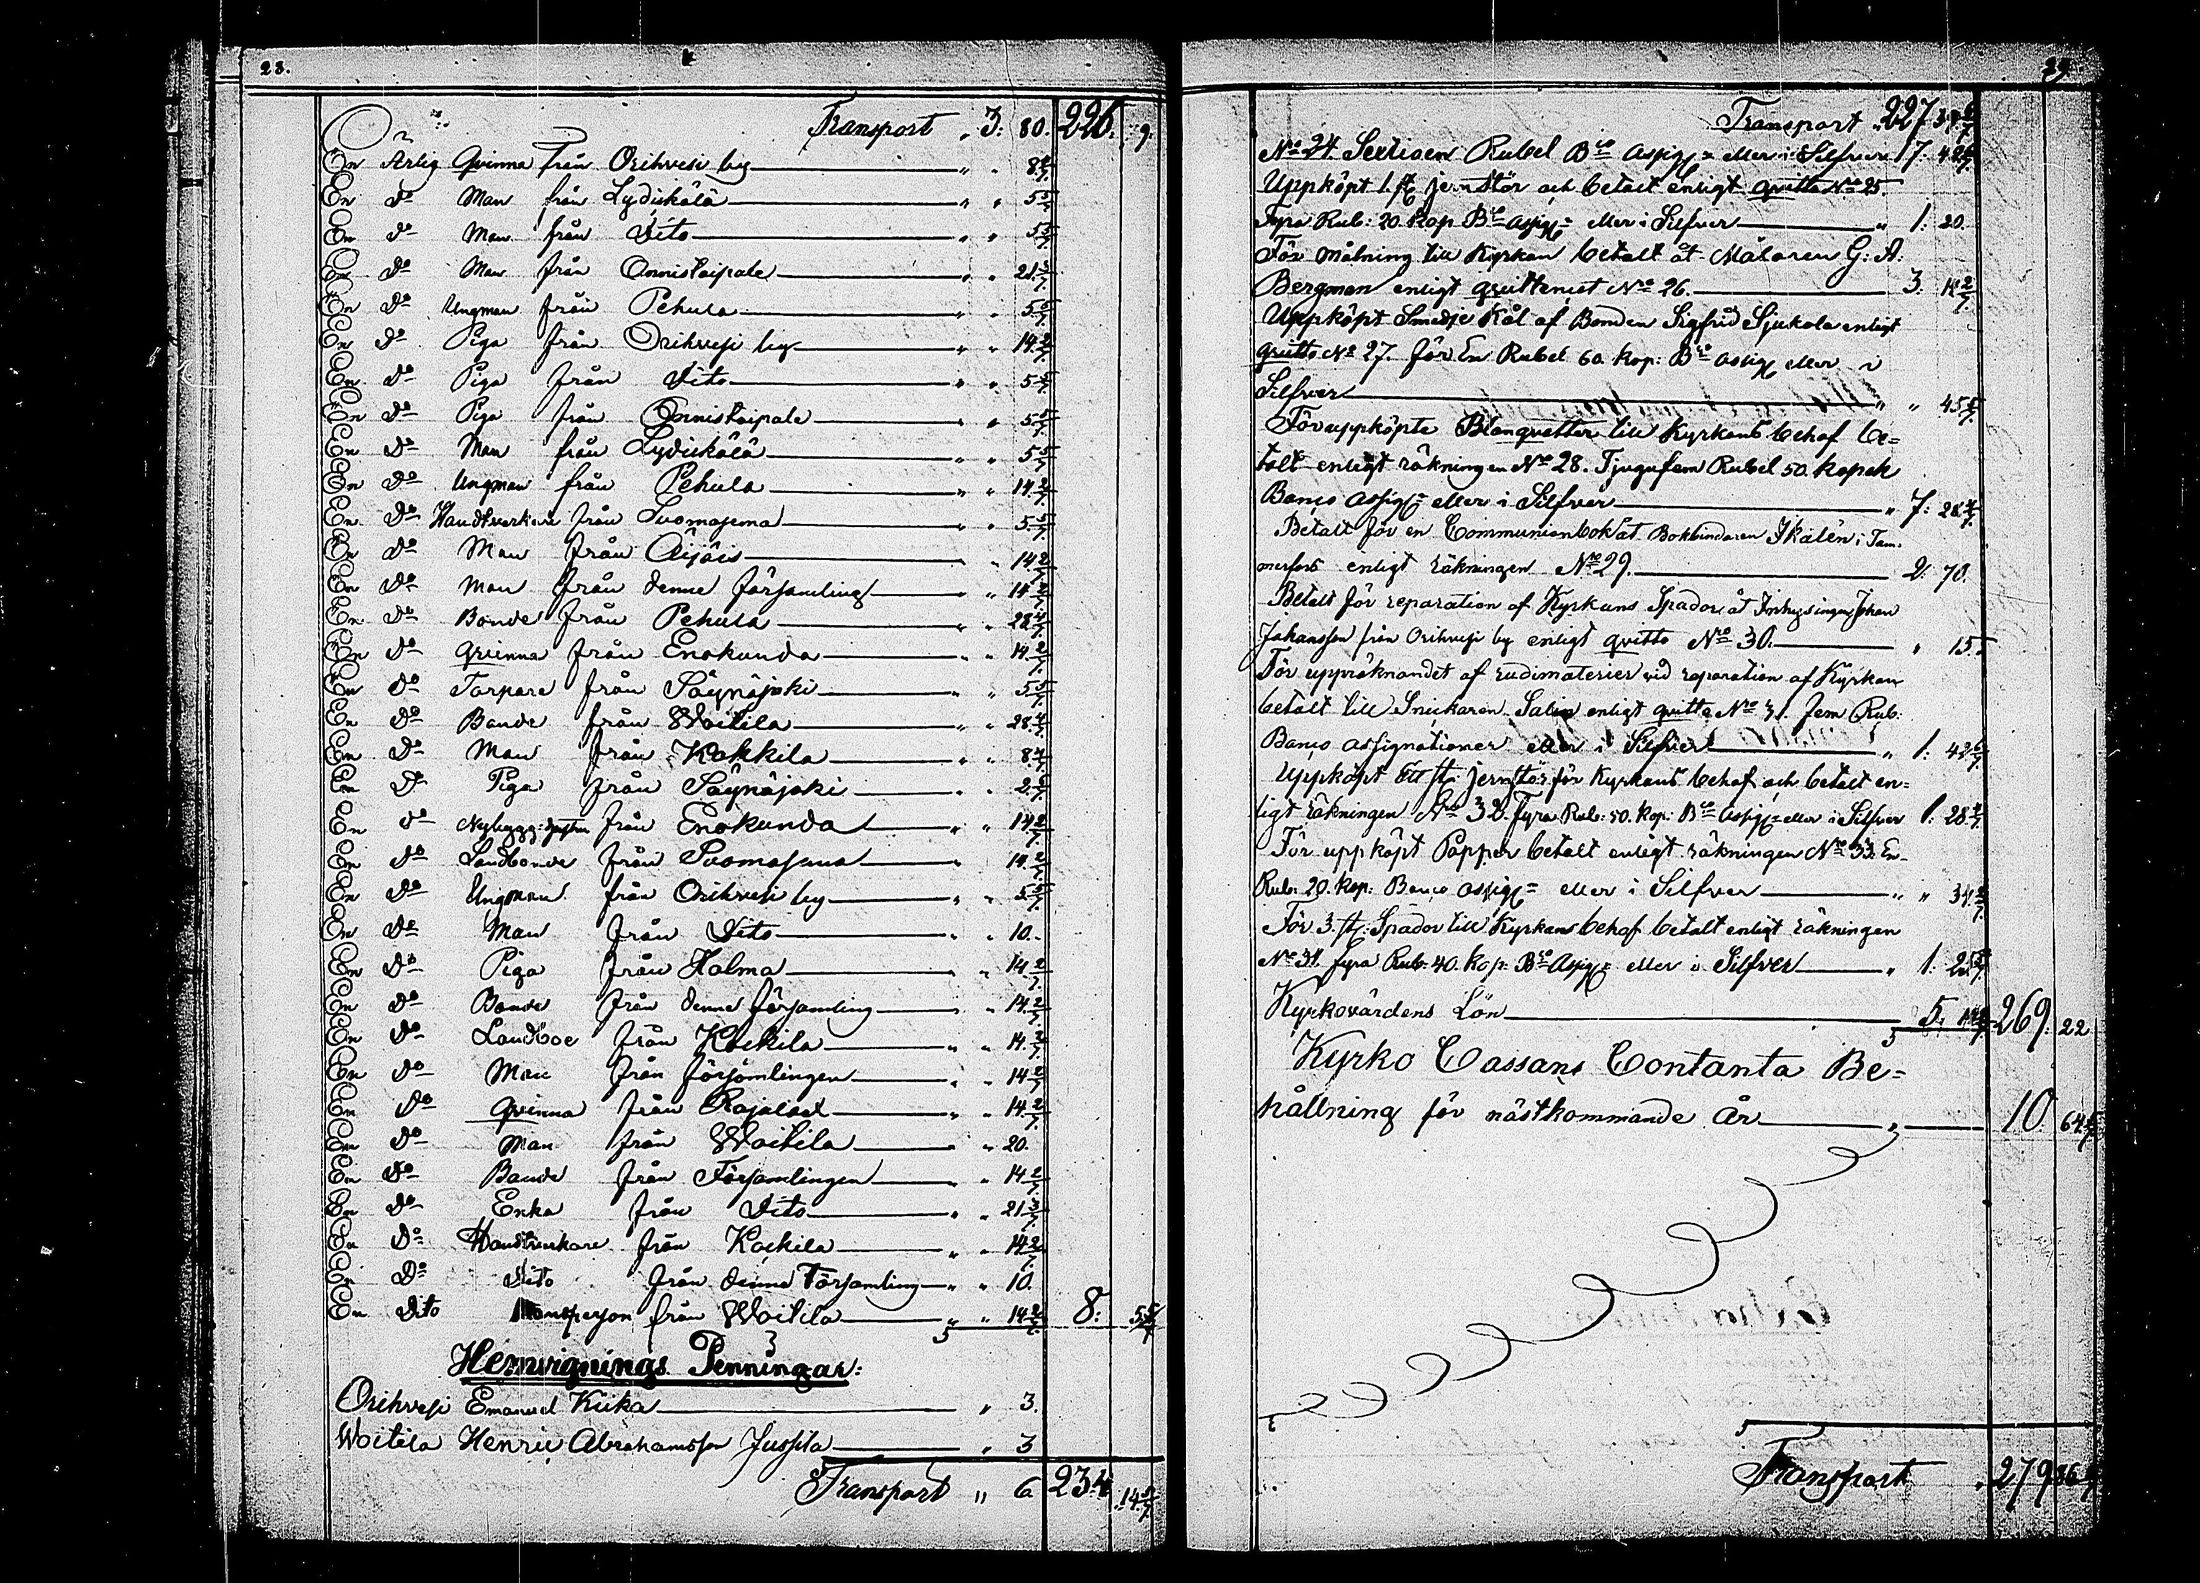 23.
Transport „ 3: 80. 226. 9.
En Ärlig Qvinna från Orihvesi by „ „ 8 4/7.
En Do Man från Lyditkälä „ „ 5 5/7.
En do Man från Dito „ „ 5 5/7.
En Do Man från Onnistaipale „ „ 21 3/7.
En Do Ungman från Pehula „ „ 5 5/7.
En Do Piga från Orihvesi by „ „ 14 2/7.
En Do Piga från Dito „ „ 5 5/7.
En Do Piga från Onnistaipale „ „ 5 5/7.
En Do Man från Lydickälä „ „ 5 5/7.
En Do Ungman från Pehula „ „ 14 2/7.
En Do Handtverkare från Suomasema „ „ 5 5/7.
En Do Man från Äijäis „ 14 2/7.
En Do Man från denne församling „ „ 14 2/7.
En Do Bonde från Pehula „ „ 28 4/7.
En Do Qvinna från Enokunda „ „ 14 2/7.
En Do Torpare från Säynäjoki „ „ 5 5/7.
En Do Bonde från Woitila „ „ 28 4/7.
En Do Man från Kokkila „ „ 8 4/7.
En Do Piga från Säynäjoki „ „ 2 6/7.
En do från Enokunda „ „ 14 2/7.
En Do Landbonde från Suomasema „ „ 14 2/7.
En Do Ungman från Orihvesi by „ „ 5 5/7.
En Do Man från Dito „ „ 10.
En Do Piga från Holma „ „ 14 2/7.
En Do Bonde från denne församling „ „ 14 2/7.
En Do Landboe från Kockila „ „ 14 2/7.
En Do Man från församlingen „ „ 14 2/7.
En Do Qvinna från Rajalax „ „ 14 2/7.
En Do Man från Woitila „ „ 20.
En Do Bonde från Församlingen „ „ 14 2/7.
En Do Enka från Dito „ „ 21 3/7.
En Do Handtverkare från Kockila „ „ 14 2/7.
En Do Dito från denne Församling „ „ 10.
En Dito Mansperson från Woitila „ „ 14 2/7. 8: 5 5/7
Hemvignings Penningar:
Orihvesi Emanuel Kiika „ 3.
Woitila Henric Abrahamsson Jussila „ 3
Transport „ 6 234. 14 5/7.
Transport „ 227 37 6/7
No 24. Sextioen Rubel Bco Assig= eller i Silfver 17. 42 6/7
Uppköpt 1. st. jernstör och betalt enligt qvitto No 25.
Fyra Rub: 20. kop Bco Assig= eller i Silfver „ 1. 20.
För målning till Kyrkan betalt åt Målaren G: A:
Bergman enligt qvittencet No 26. 3. 14 2/7
Uppköpt Smedje Kål af Bonden Sigfrid Sjukola enligt
qvitto No 27. för En Rubel 60. kop: Bco Assig eller i
Silfver „ „ 45 5/7
För uppköpte Blanquetter till Kyrkans behof be=
talt enligt räkningen No 28. Tjugufem Rubel 50. kopek
Banco Assig= eller i Silfver „ 7: 28 4/7.
Betalt för en Communionbok åt Bokbindaren Ikalén i Tam-
merfors enligt räkningen No 29. 2. 70.
Betalt för reparation af Kyrkans Spador åt Inhysingen Johan
Johansson från Orihvesi by enligt qvitto No 30. „ 15.
För uppräknandet af rudimaterier vid reparation af Kyrkan
betalt till Snickaren Salin enligt qvitto No 31. fem Rub:
Banco Assignationer eller i Silfver „ 1: 42 6/7.
Uppköpt Ett st: jernstör för Kyrkans behof och betalt en=
ligt räkningen No 32. Fyra Rub: 50. kop: Bco Assig= eller i Silfver 1. 28 4/7.
För uppköpt Papper betalt enligt räkningen No 33. En
Rub: 20. kop: Banco Assig= eller i Silfver „ „ 34 2/7
För 3. st: Spador till Kyrkans behof betalt enligt räkningen
No 34. fyra Rub: 40. kop: Bco Assig= eller i Silfver „ 1. 25 5/7
Kyrkovärdens Lön 5. 14 2/7 269. 22
Kyrko Cassans Contanta Be=
hållning för nästkommande år „ 10 64 6/7
Transport „ 279 86 6/7